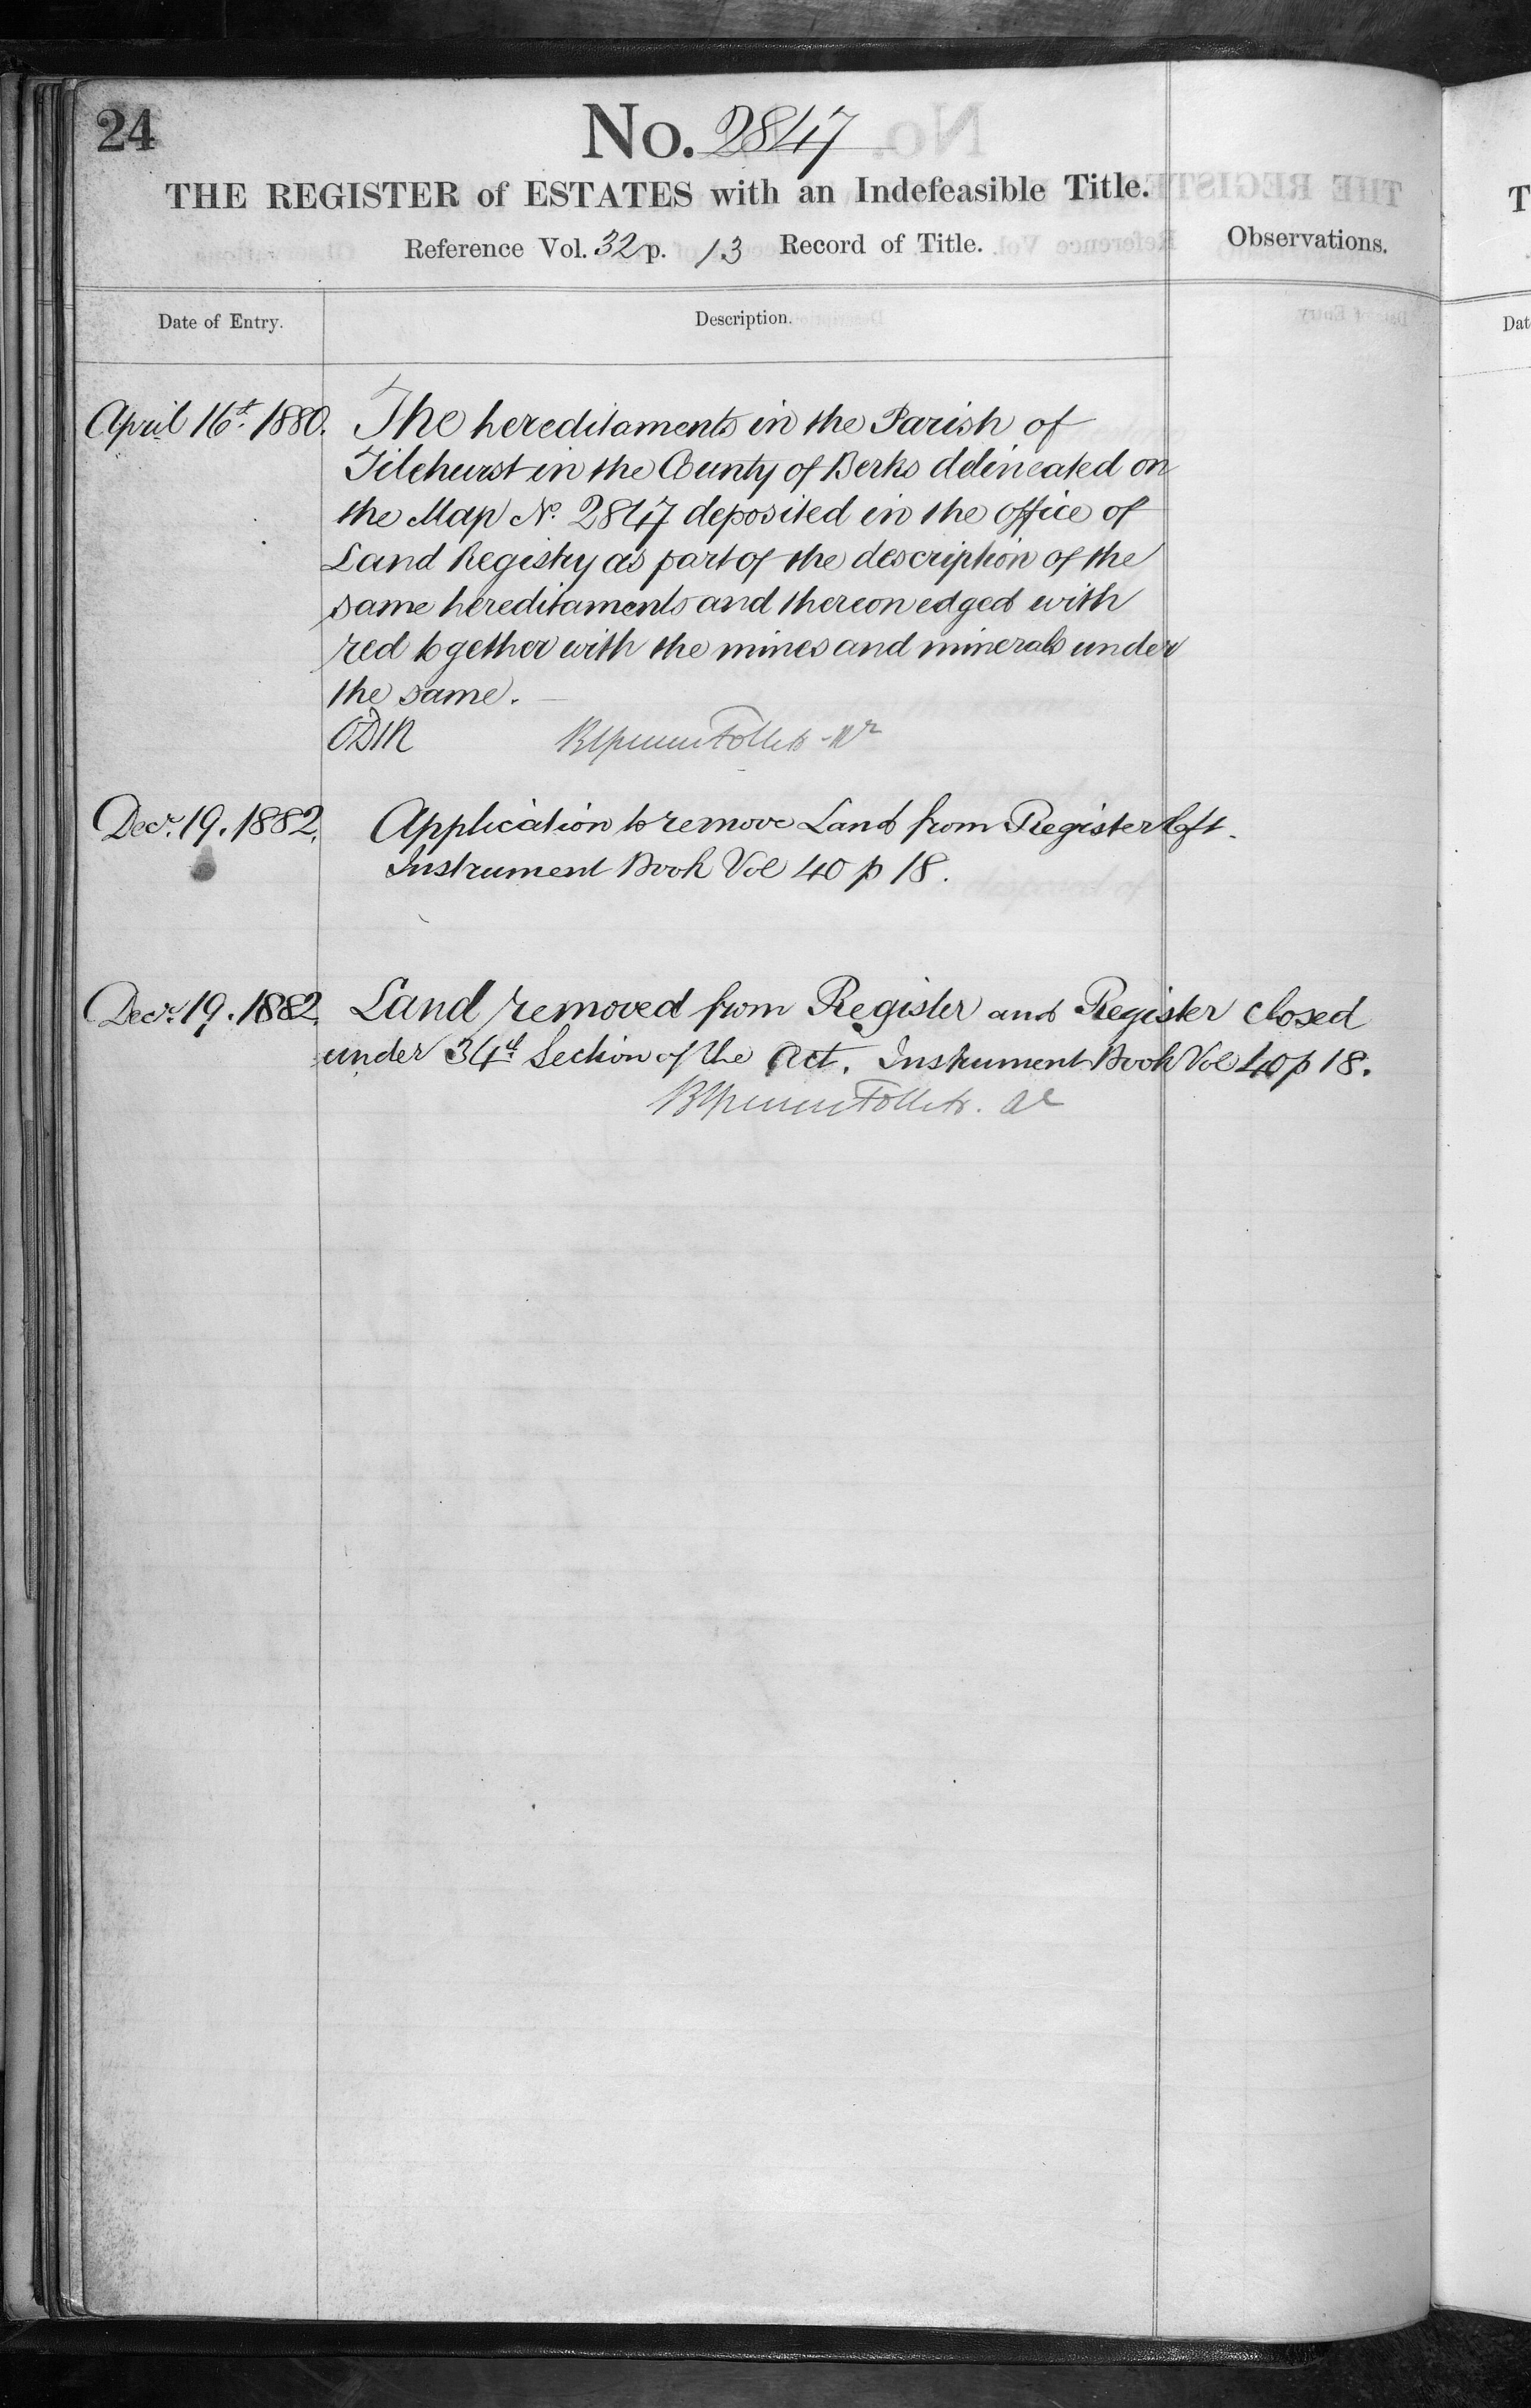 24
No. 2847
THE REGISTER of ESTATES with an Indefeasible Title.
Reference Vol. 32 p. 13 Record of Title.
Observations.
Date of Entry.
Description.
April 16th. 1880. The hereditaments in the Parish of
Tilehurst in the County of Berks delineated on
the Map No. 2847 deposited in the office of
Land Registry as part of the description of the
same hereditaments and thereon edged with
red together with the mines and minerals under
the same.
Follett
Decr. 19. 1882. Application to remove Land from Register left.
Instrument Book Vol 40 p 18.
Decr. 19. 1882. Land removed from Register and Register closed
under 34th Section of the Act. Instrument Book Vol 40 p 18.
Follett.
T
Dat